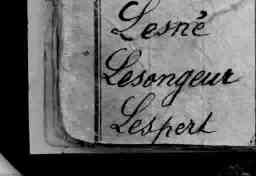 Lesné
Lesongeur
Lespert